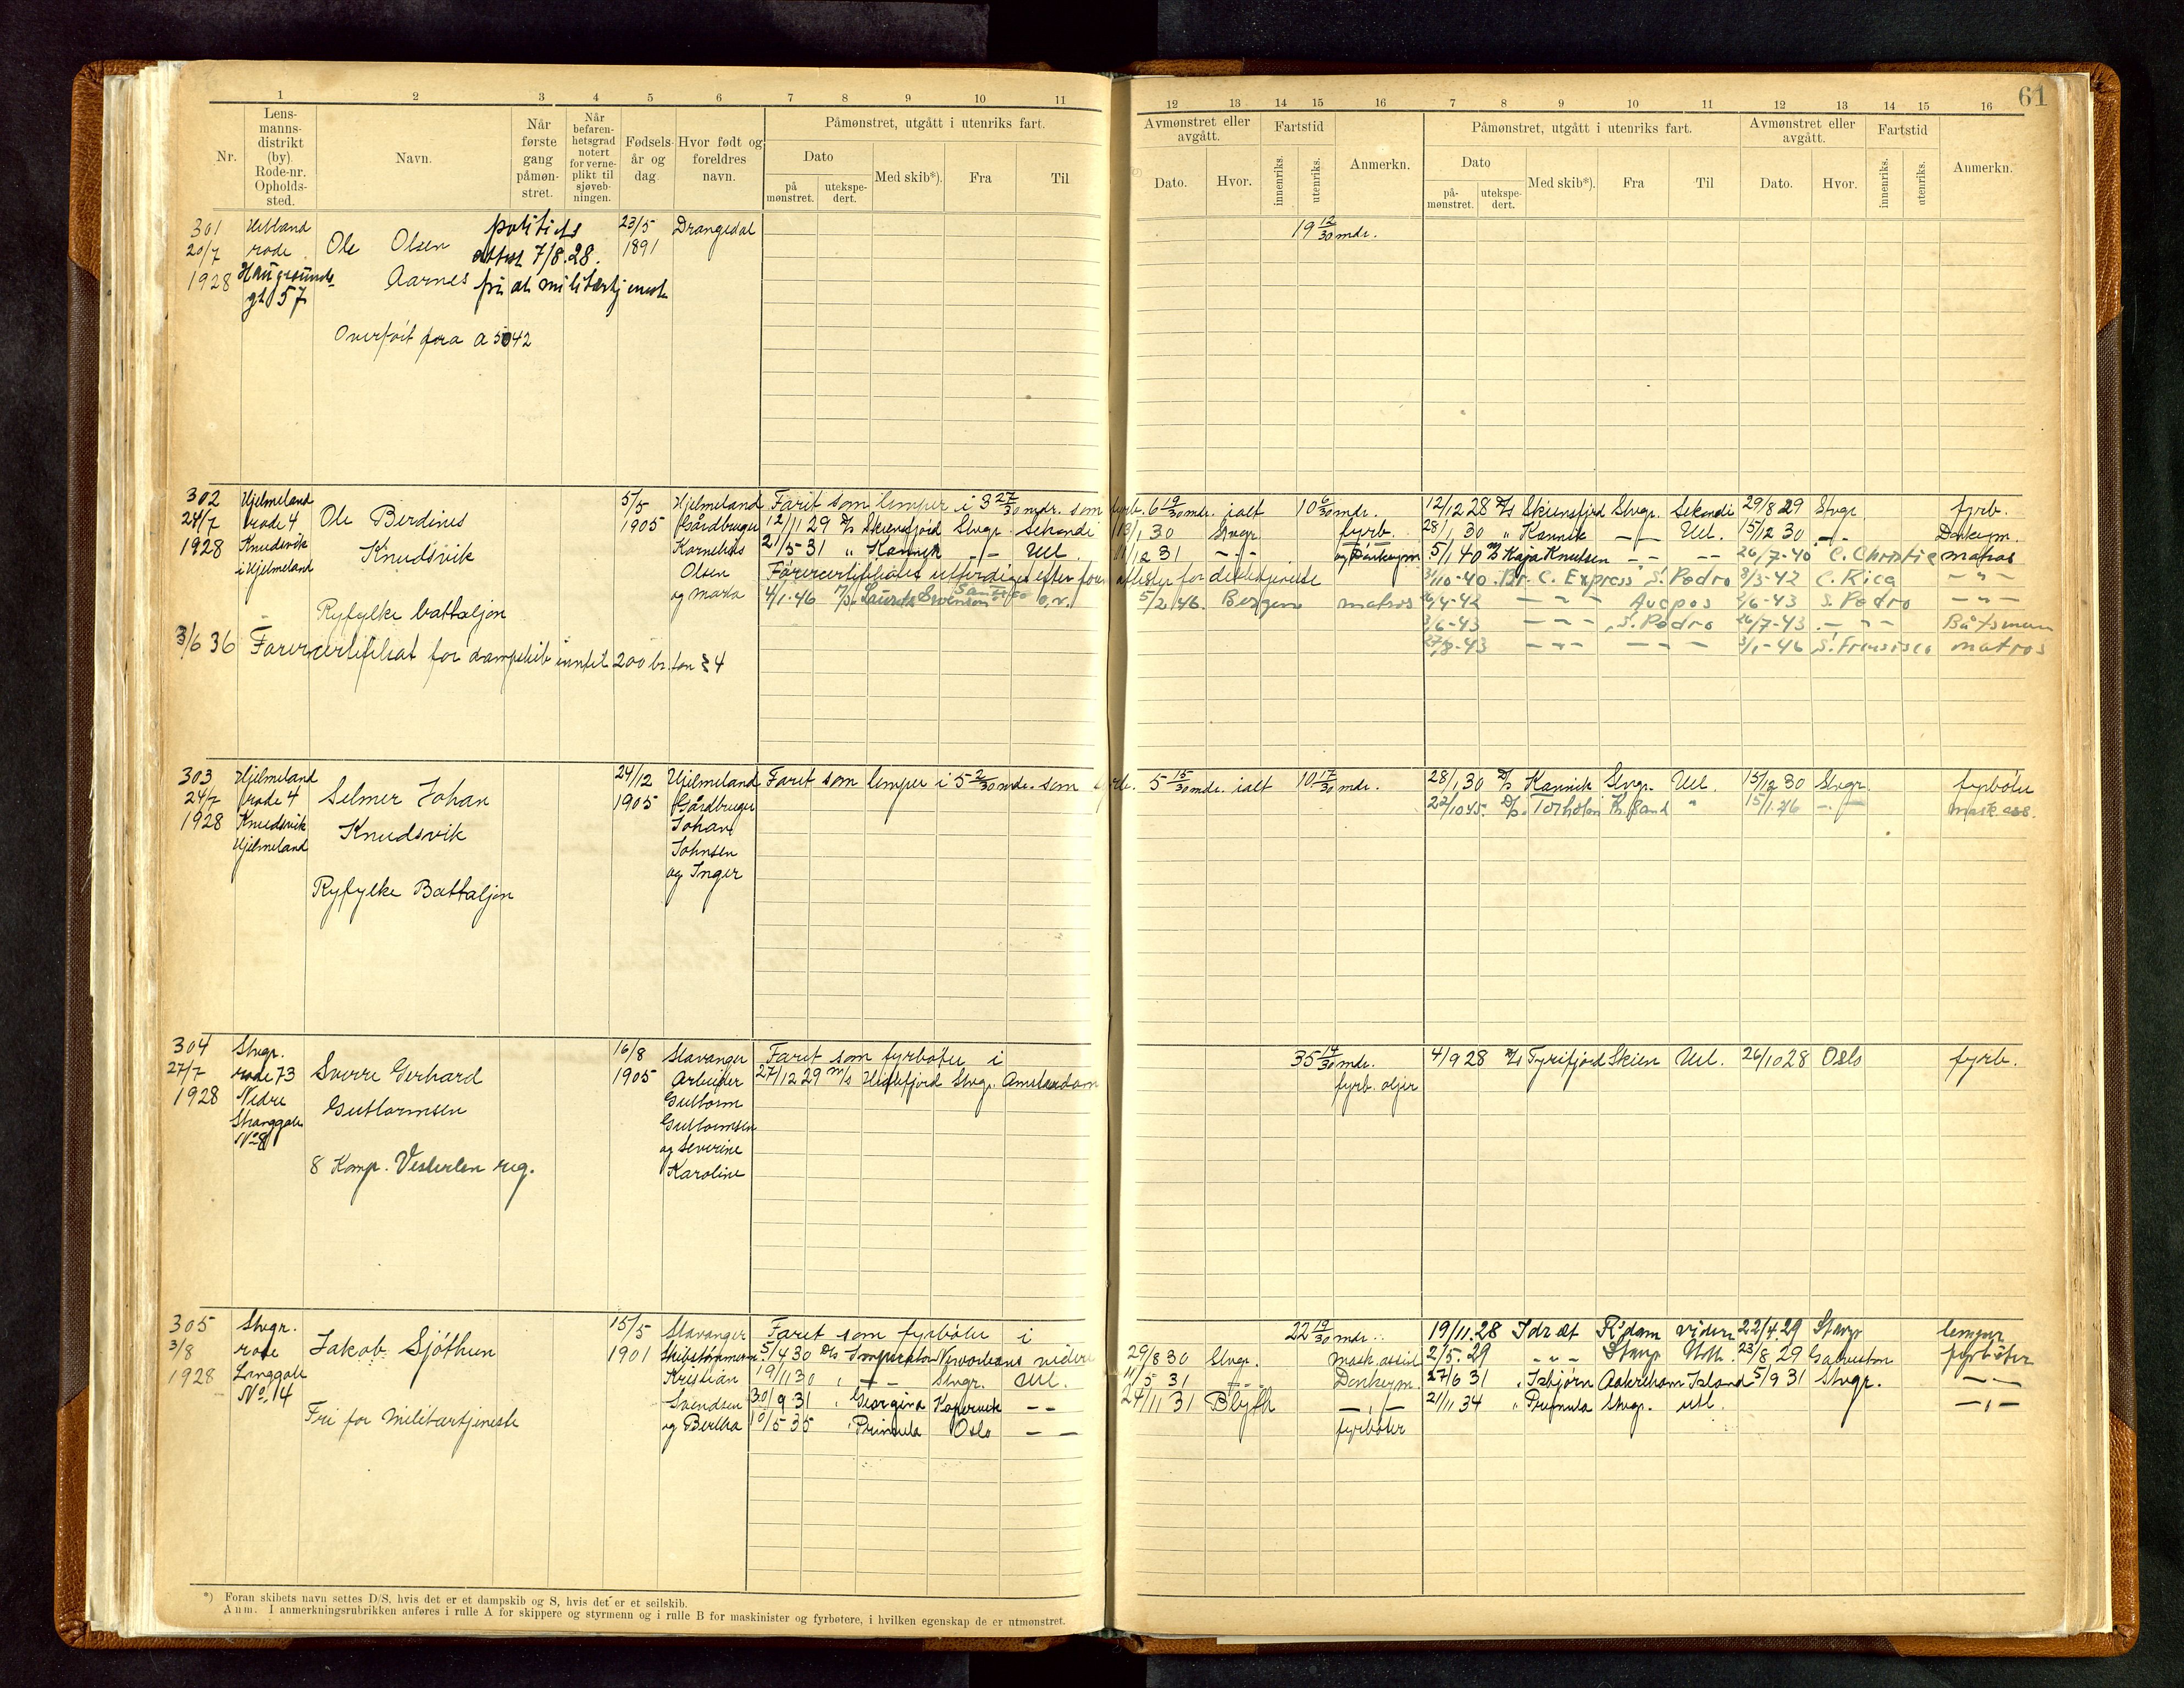 61
1 2 3 4 5 6 7 8 9 10 11 12 13 14 15 16 7 8 9 10 11 12 13 14 15 16
Nr.
Lens-
manns-
distrikt
(by).
Rode-nr.
Opholds-
sted.
Navn.
Når
første
gang
påmøn-
stret.
Når
befaren-
hetsgrad
notert
for verne-
plikt til
sjøveb-
ningen.
Fødsels-
år og
dag
Hvor født og
foreldres
navn.
Påmønstret, utgått i utenriks fart.
Dato
på
mønstret.
utekspe-
dert.
Med skib*).
Fra
Til
Avmønstret eller
avgått.
Dato.
Hvor.
Fartstid
innenriks.
utenriks.
Anmerkn.
Påmønstret, utgått i utenriks fart.
Dato
på-
mønstret.
utekspe-
dert.
Med skib*).
Fra
Til
Avmønstret eller
avgått.
Dato.
Hvor.
Fartstid
innenriks.
utenriks.
Anmerkn.
301
20/7
1928
Hetland
rode
Haugesunds-
gt 57
Ole Olsen
Aarnes
politiets
attest 7/8.28.
fri at militærtjeneste
Overført fra A 5042
23/5
1891
Drangedal
19 12/30 mdr.
302
24/7
1928
Hjelmeland
rode 4
Knudsvik
i Hjelmeland
Ole Berdines
Knudsvik
Ryfylke battaljon
3/6 36 Førercertifikat for dampskib inntil 200 br. ton
5/5
1905
Hjelmeland
Gårdbruger
Kornelius
Olsen
og Marta
Faret som lemper i 3 27/30 mdr. som fyrb. 6 19/30 mdr. ialt 10 6/30 mdr.
12/11 29 D/s Skiensfjord Stvgr. Sekondi 13/1 30 Stvgr. fyrb.
21/5 31 " Kannik -"- Utl. 12 31 -"- og Donkeym.
Førercertifikatet utferdiget efter
4/1-46 Laurits Swenson 5/2 46. Bergen matros
12/12 28 D/s Skiensfjord Stvgr. Sekondi 29/8 29 Stvgr fyrb.
28/1 30 " Kannik -"- Utl. 15/12 30 -"- Donkeym.
5/1 40 M/s Kaja Knutsen - - -- 26/7-40 C. Christie matros
3/10-40 Br. C. Express S. Pedro 3/3-42 C. Rica -"-
4-42 -"- 2/6-43 S. Pedro -"-
3/6-43 -"- S. Pedro 26/7-43 -"- Båtsmann
27/8-43 -"- -"- 3/1-46 S. Fransisco matros
303
24/7
1928
Hjelmeland
rode 4
Knudsvik
Hjelmeland
Selmer Johan
Knudsvik
Ryfylke Battaljon
24/12
1905
Hjelmeland
Gårdbruger
Johan
Johnsen
og Inger
Faret som lemper i 5 2/30 mdr. som fyrb. 5 15/30 mdr. ialt 10 17/30 mdr.
28/1 30 D/s Kannik Stvgr. Utl. 15/12 30 Stvgr. fyrbøter
22/10 45. D/s. Torholm Kr. sand " 15/1.46 -"- mask. ass.
304
27/7
1928
Stvgr.
rode 73
Nedre
Stranggate
No 28
Sverre Gerhard
Guttormsen
8 Komp. Vesterlen reg.
16/8
1905
Stavanger
Arbeider
Guttorm
Guttormsen
og Severine
Karoline
Faret som fyrbøter i
27/12 29 M/s Hidlefjord Stvgr. Amsterdam
35 14/30 mdr.
fyrb. oljer
4/9 28 M/s Tyrifjord Skien Utl. 26/10 28 Oslo fyrb.
305
3/8
1928
Stvgr.
rode
Langgate
No. 14
Jakob Sjøthun
Fri for militærtjeneste
15/5
1901
Stavanger
Skibstømmerm.
Kristian
Svendsen
og Bertha
Faret som fyrbøter i
22 19/30 mdr.
5/4 30 D/s Imperator videre 29/8 30 Stvgr. Mask. assist
19/11 30 " -"- Stvgr. Utl. 11/5 31 -"- Donkeym.
30/9 31 " Georgina Kopervik -- 24/11 31 Blyth -"-
10/5 35 " Primula Oslo -- fyrbøter
19/11.28 Idræt R'dam videre 22/4.29 Stavgr lemper
2/5.29 -"- Stavgr Utl. 23/8 29 Galveston fyrbøter
27/6 31 " Isbjørn Aakrehamn Island 5/9 31 Stvgr. -"-
21/11 34 " Primula Stvgr. utl. -"-
*) Foran skibets navn settes D/S, hvis det er et dampskib og S, hvis det er et seilskib.
Anm. I anmerkningsrubrikken anføres i rulle A for skippere og styrmenn og i rulle B for maskinister og fyrbøtere, i hvilken egenskap de er utmønstret.